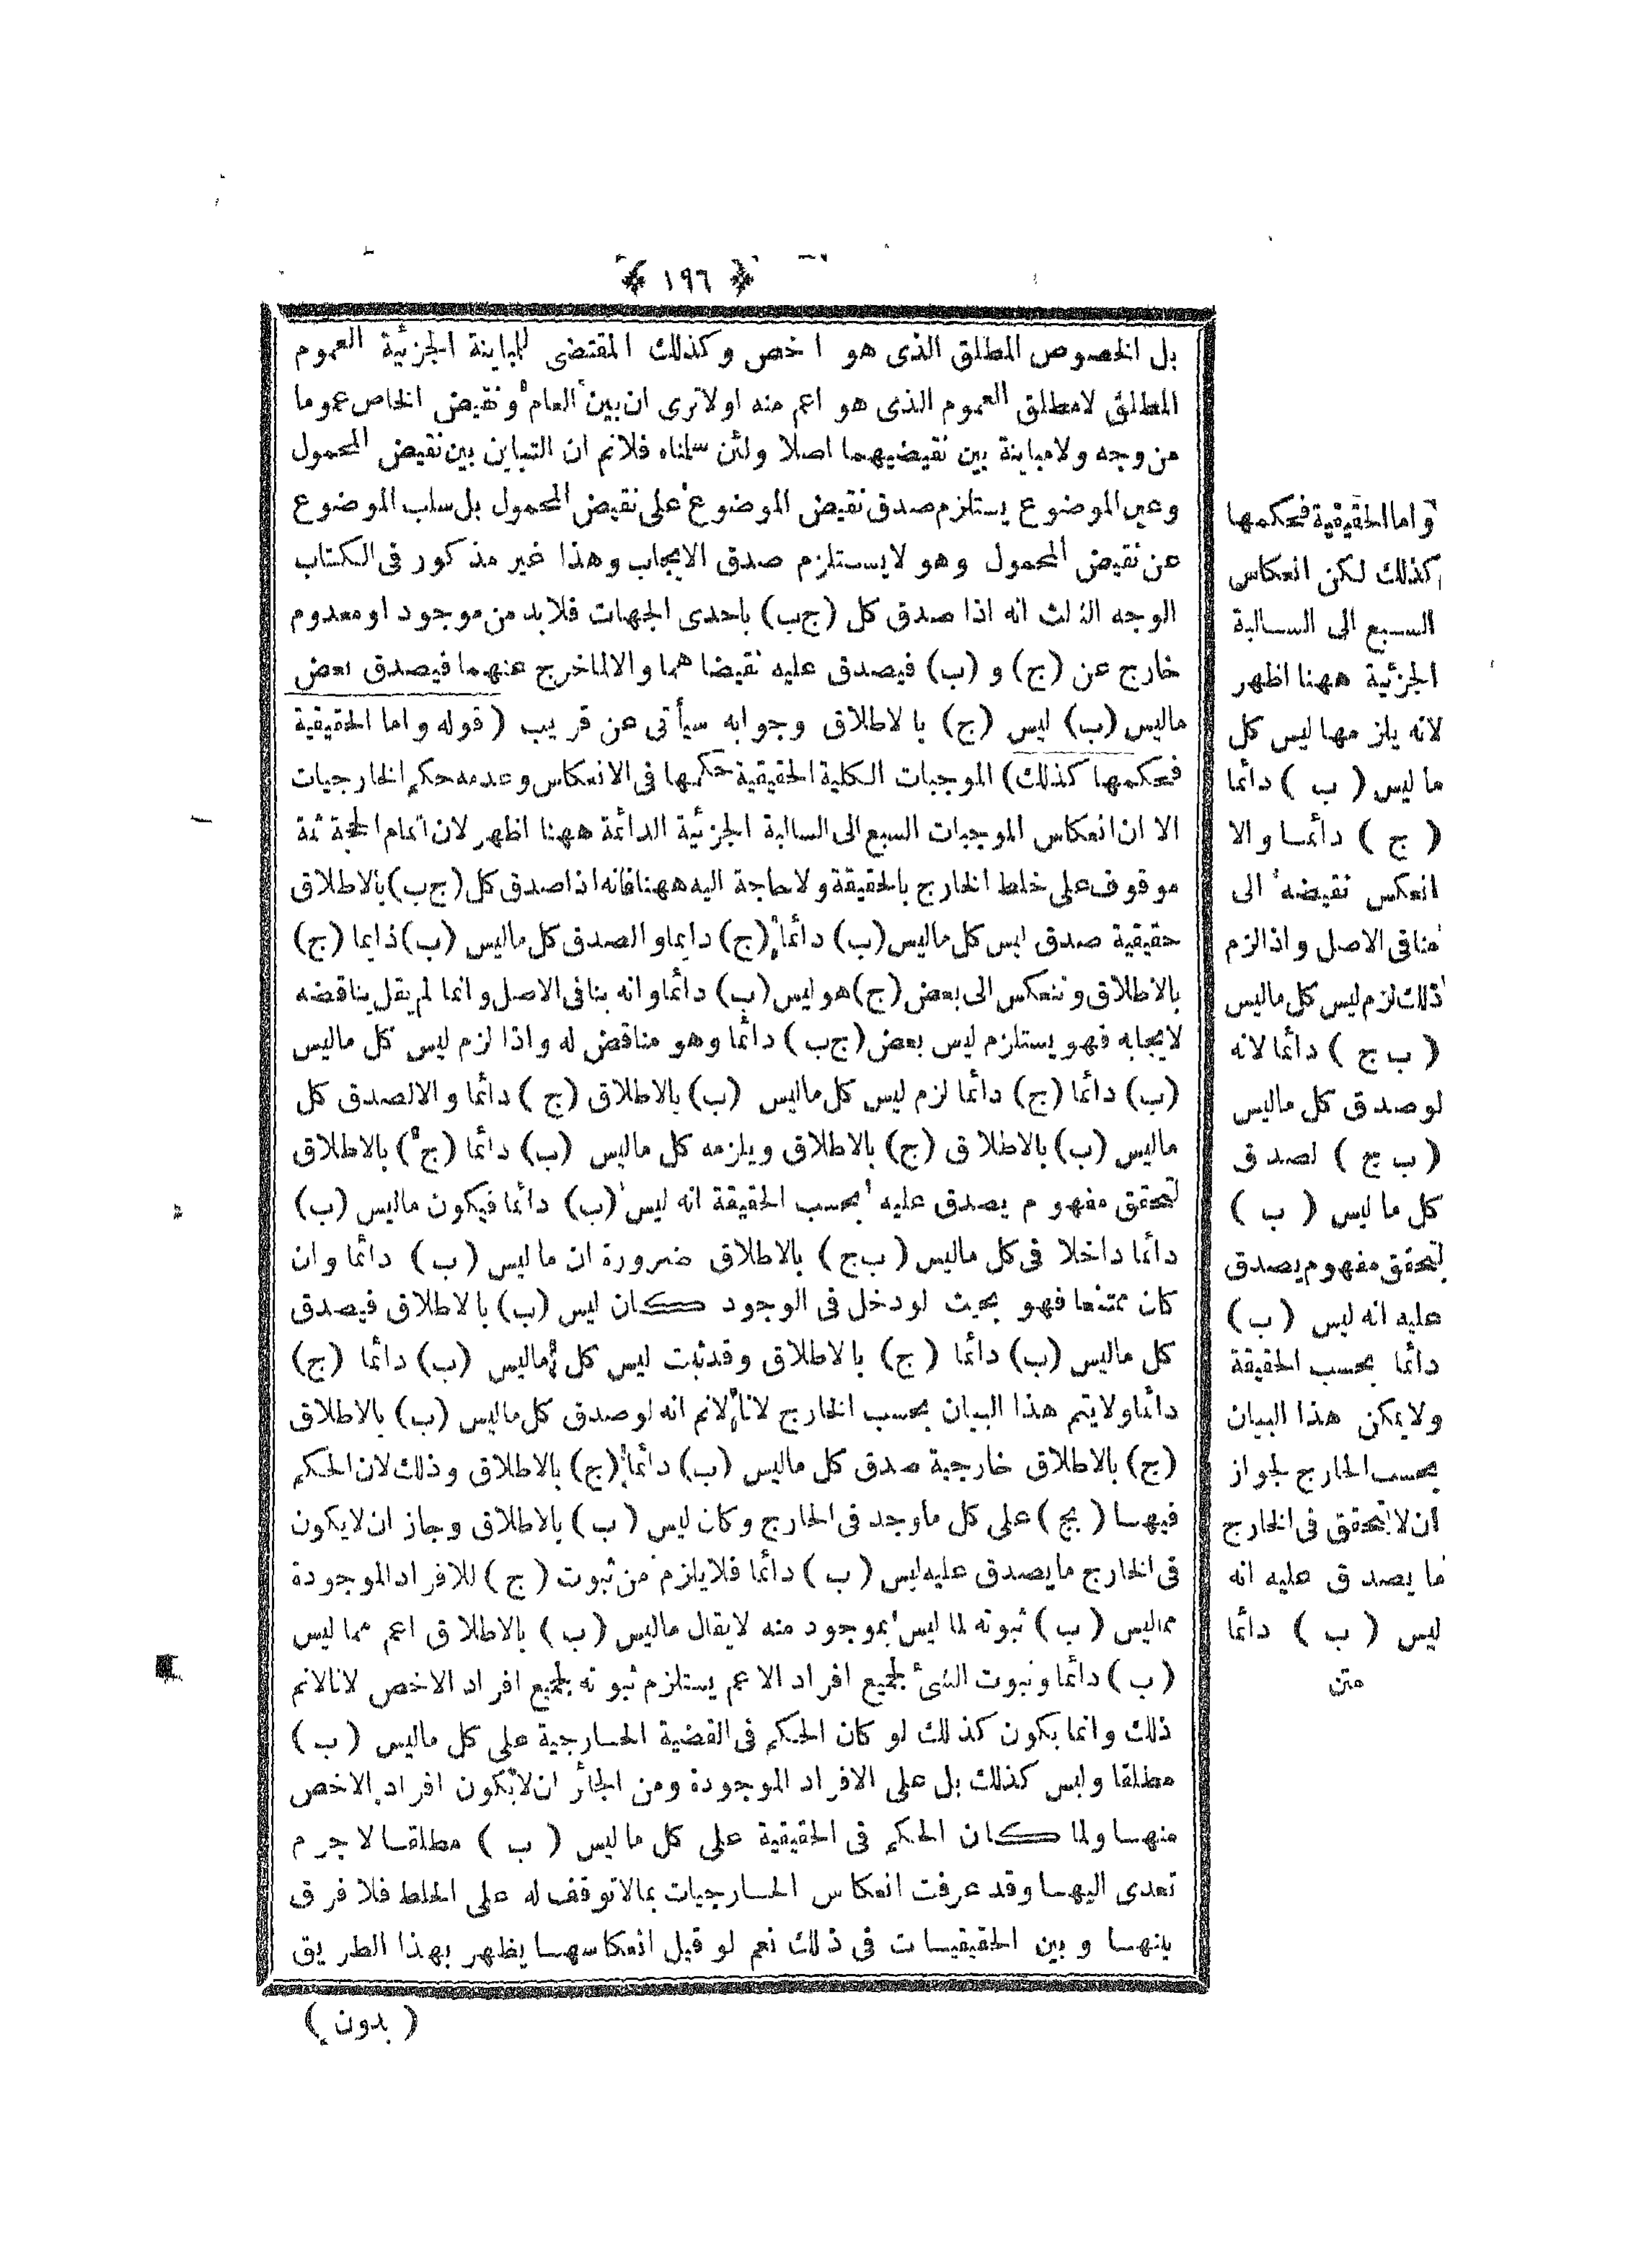 ﴿ ١٩٦ ﴾
بل الخصوص المطلق الذى هو اخص وكذلك المقتضى للمباينة الجزئية العموم
المطلق لامطلق العموم الذى هو اعم منه اولاترى ان بين العام ونقيض الخاص عموما
من وجه ولامباينة بين نقيضيهما اصلا ولئن سلمناه فلانم ان التباين بين نقيض المحمول
وعين الموضوع يستلزم صدق نقيض الموضوع على نقيض المحمول بل سلب الموضوع
عن نقيض المحمول وهو لايستلزم صدق الايجاب وهذا غير مذكور فى الكتاب
الوجه الثالث انه اذا صدق كل (ج ب) باحدى الجهات فلابد من موجود اومعدوم
خارج عن (ج) و (ب) فيصدق عليه نقيضاهما والالماخرج عنهما فيصدق بعض
ماليس (ب) ليس (ج) بالاطلاق وجوابه سيأتى عن قريب (قوله واما الحقيقية
فحكمها كذلك) الموجبات الكلية الحقيقية حكمها فى الانعكاس وعدمه حكم الخارجيات
الا ان انعكاس الموجبات السبع الى السالبة الجزئية الدائمة ههنا اظهر لان اتمام الحجة ثمة
موقوف على خلط الخارج بالحقيقة ولاحاجة اليه ههنا فانه اذا صدق كل (ج ب) بالاطلاق
حقيقية صدق ليس كل ماليس (ب) دائما (ج) دايما والصدق كل ماليس (ب) دايما (ج)
بالاطلاق وتنعكس الى بعض (ج) هو ليس (ب) دائما وانه ينافى الاصل وانما لم يقل يناقضه
لايجابه فهو يستلزم ليس بعض (ج ب) دائما وهو مناقض له واذا لزم ليس كل ماليس
(ب) دائما (ج) دائما لزم ليس كل ماليس (ب) بالاطلاق (ج) دائما والالصدق كل
ماليس (ب) بالاطلاق (ج) بالاطلاق ويلزمه كل ماليس (ب) دائما (ج) بالاطلاق
لتحقق مفهوم يصدق عليه بحسب الحقيقة انه ليس (ب) دائما فيكون ماليس (ب)
دائما داخلا فى كل ماليس (ب ج) بالاطلاق ضرورة ان ماليس (ب) دائما وان
كان ممتنعا فهو بحيث لودخل فى الوجود كان ليس (ب) بالاطلاق فيصدق
كل ماليس (ب) دائما (ج) بالاطلاق وقدثبت ليس كل ماليس (ب) دائما (ج)
دائما ولايتم هذا البيان بحسب الخارج لانا لانم انه لوصدق كل ماليس (ب) بالاطلاق
(ج) بالاطلاق خارجية صدق كل ماليس (ب) دائما (ج) بالاطلاق وذلك لان الحكم
فيهسا (بج) على كل ماوجد فى الخارج وكان ليس (ب) بالاطلاق وجاز ان لايكون
فى الخارج مايصدق عليه ليس (ب) دائما فلايلزم من ثبوت (ج) للافراد الموجودة
مماليس (ب) ثبوته لما ليس بموجود منه لايقال ماليس (ب) بالاطلاق اعم مما ليس
(ب) دائما وثبوت الشئ لجميع افراد الاعم يستلزم ثبوته لجميع افراد الاخص لانالانم
ذلك وانما يكون كذلك لو كان الحكم فى القضية الخسارجية على كل ماليس (ب)
مطلقا وليس كذلك بل على الافراد الموجودة ومن الجائز ان لاتكون افراد الاخص
منهسا ولما كان الحكم فى الحقيقية على كل ماليس (ب) مطلقسا لاجرم
تعدى اليهسا وقد عرفت انعكاس الخسارجيات بمالاتوقف له على الخلط فلا فرق
بينهسا وبين الحقيقيسات فى ذلك نعم لو قيل انعكاسهسا يظهر بهذا الطريق
(بدون)
واما الحقيقية فحكمها
كذلك لكن انعكاس
السبع الى السالبة
الجزئية ههنا اظهر
لانه يلزمها ليس كل
ماليس (ب) دائما
(ج) دائمسا والا
انعكس نقيضه الى
منافى الاصل واذا لزم
ذلك لزم ليس كل ماليس
(ب ج) دائما لانه
لوصدق كل ماليس
(ب ج) لصدق
كل ماليس (ب)
لتحقق مفهوم يصدق
عليه انه ليس (ب)
دائما بحسب الحقيقة
ولايمكن هذا البيان
بحسب الخارج لجواز
ان لايتحقق فى الخارج
ما يصدق عليه انه
ليس (ب) دائما
متن